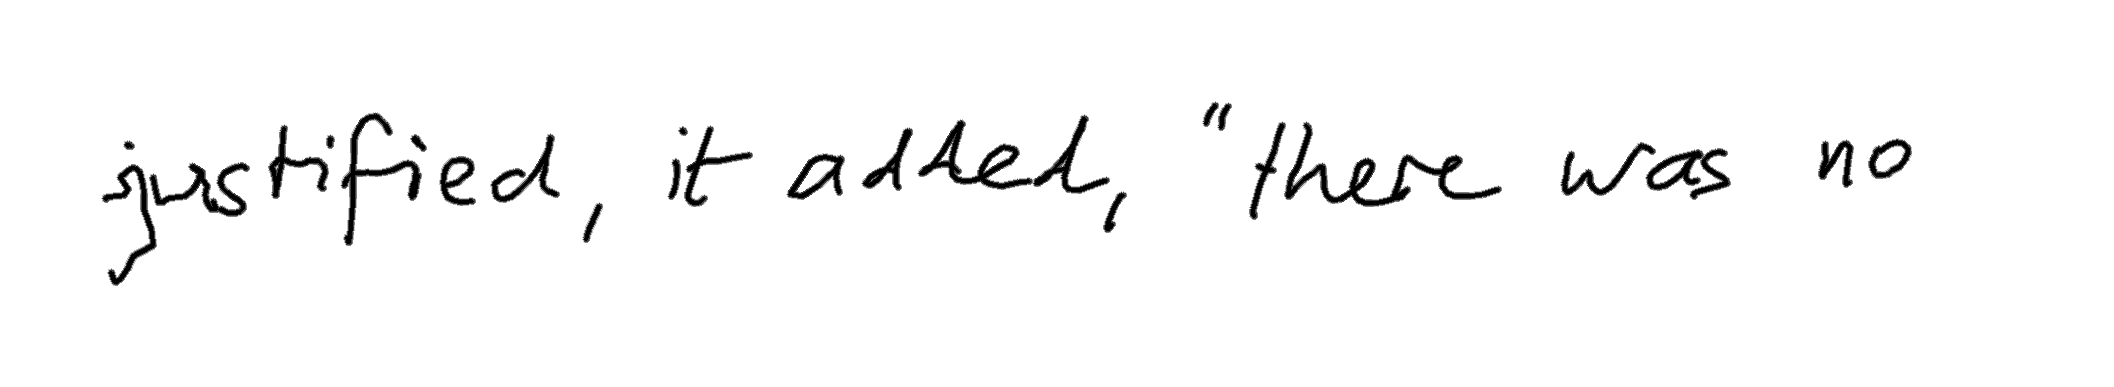 justified, it added, "there was no